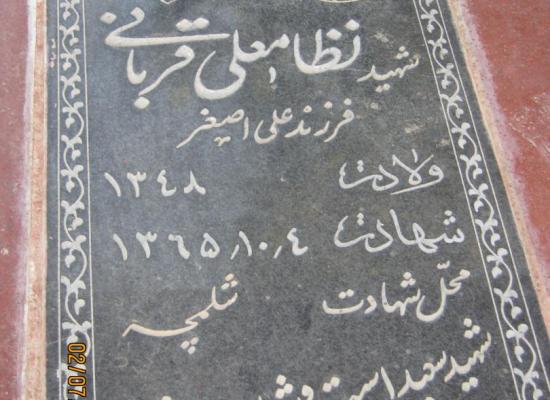 شهید نظامعلی قربانی
فرزند علی اصغر
ولادت ۱۳۴۸
شهادت ۱۳۶۵٫۱۰٫۴
محلّ شهادت شلمچه
شهید سعید است و
02/07